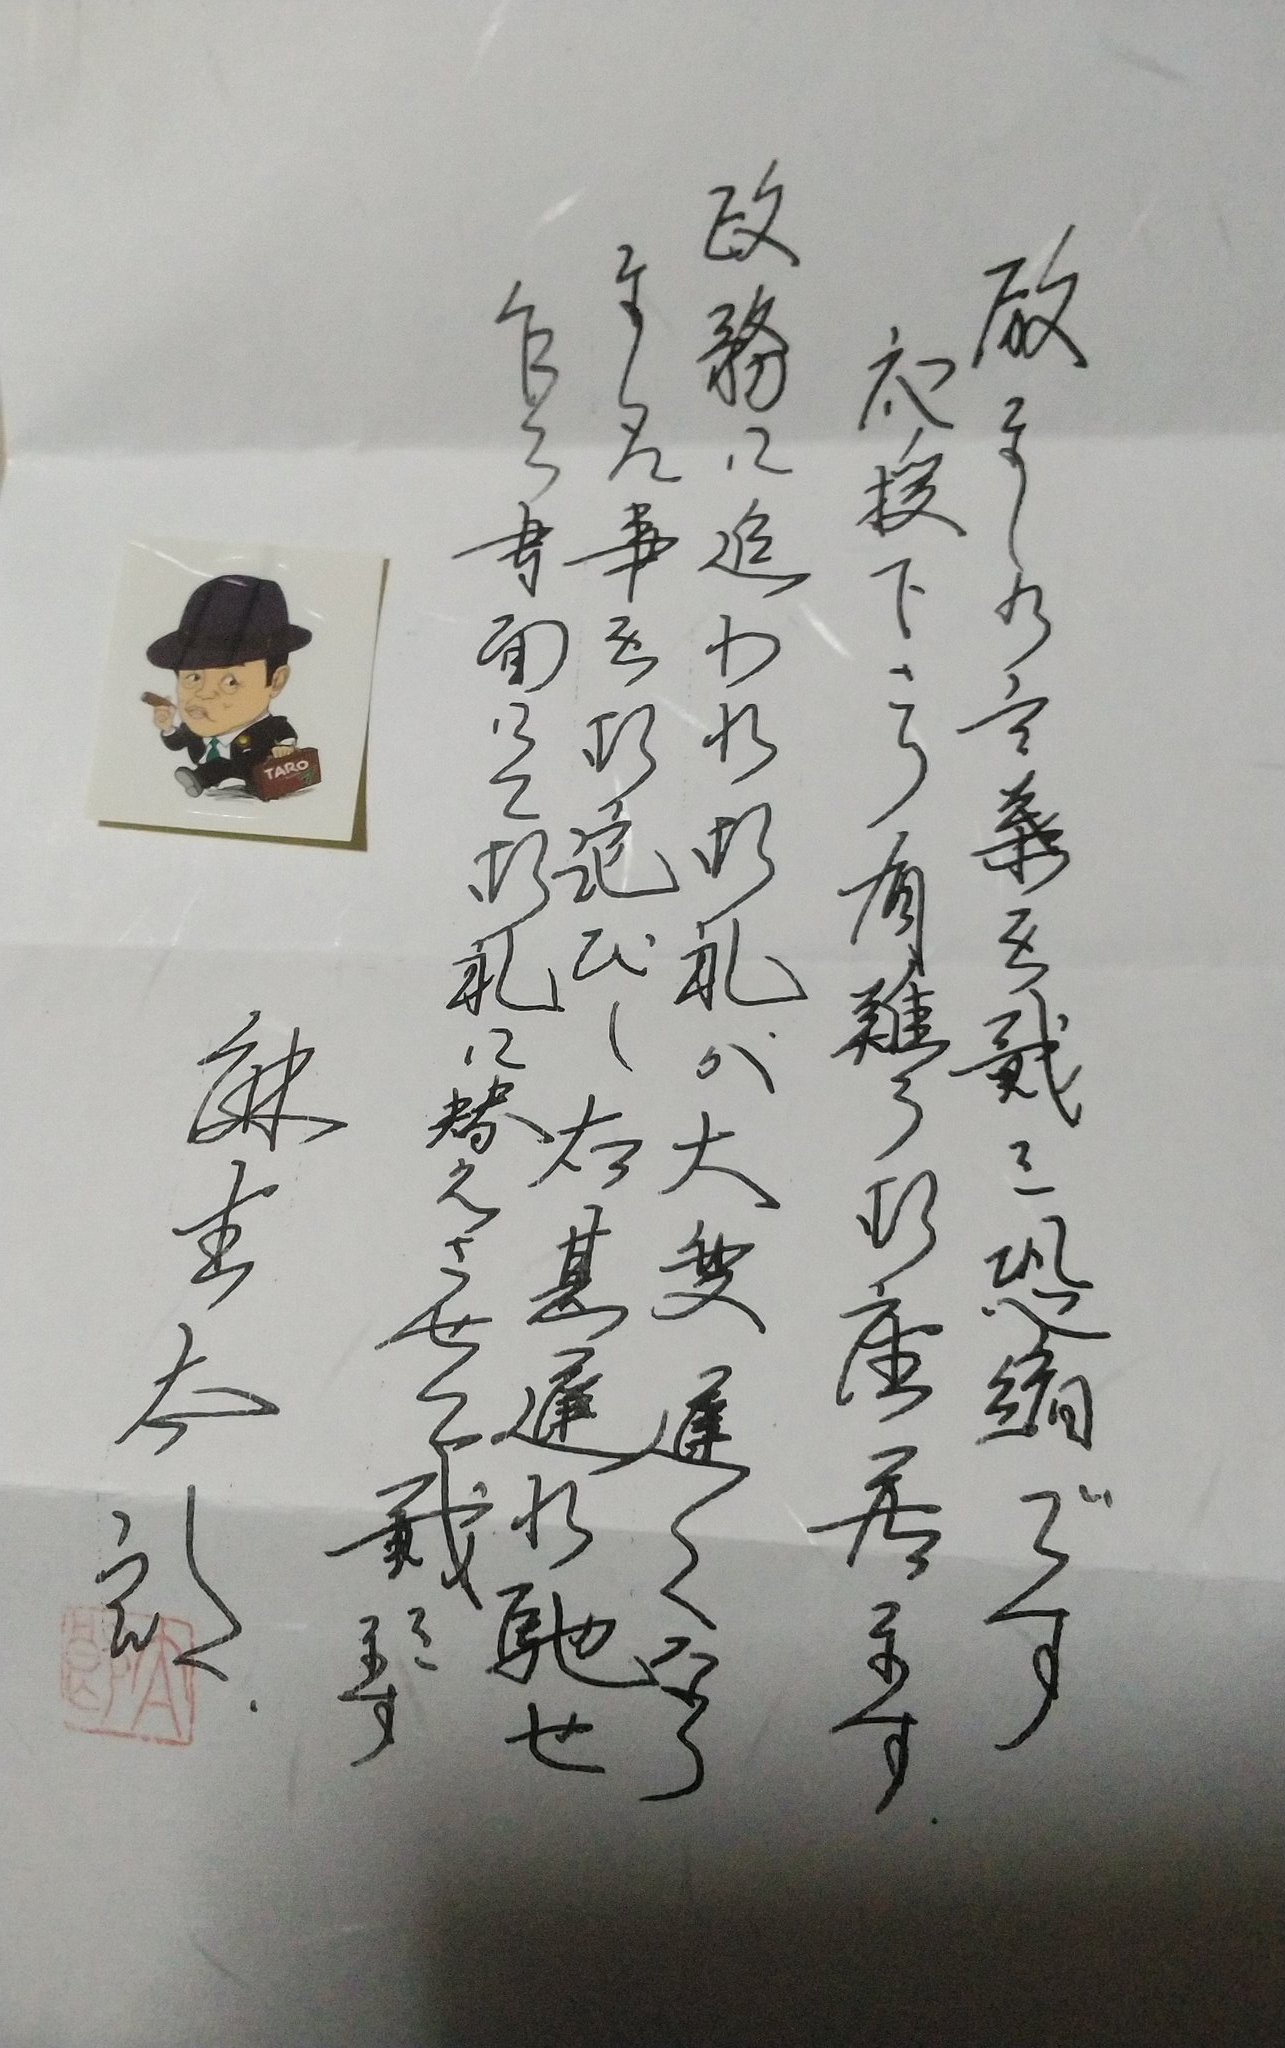 励ましの言葉を戴き恐縮です
応援下さり有難う御座居ます.
政務に追われ御礼が大変遅くなり
ました事を御詫びし 甚 遅れ馳せ
乍ら書面にて御礼に替えさせて戴きます
麻生太郎.
TARO